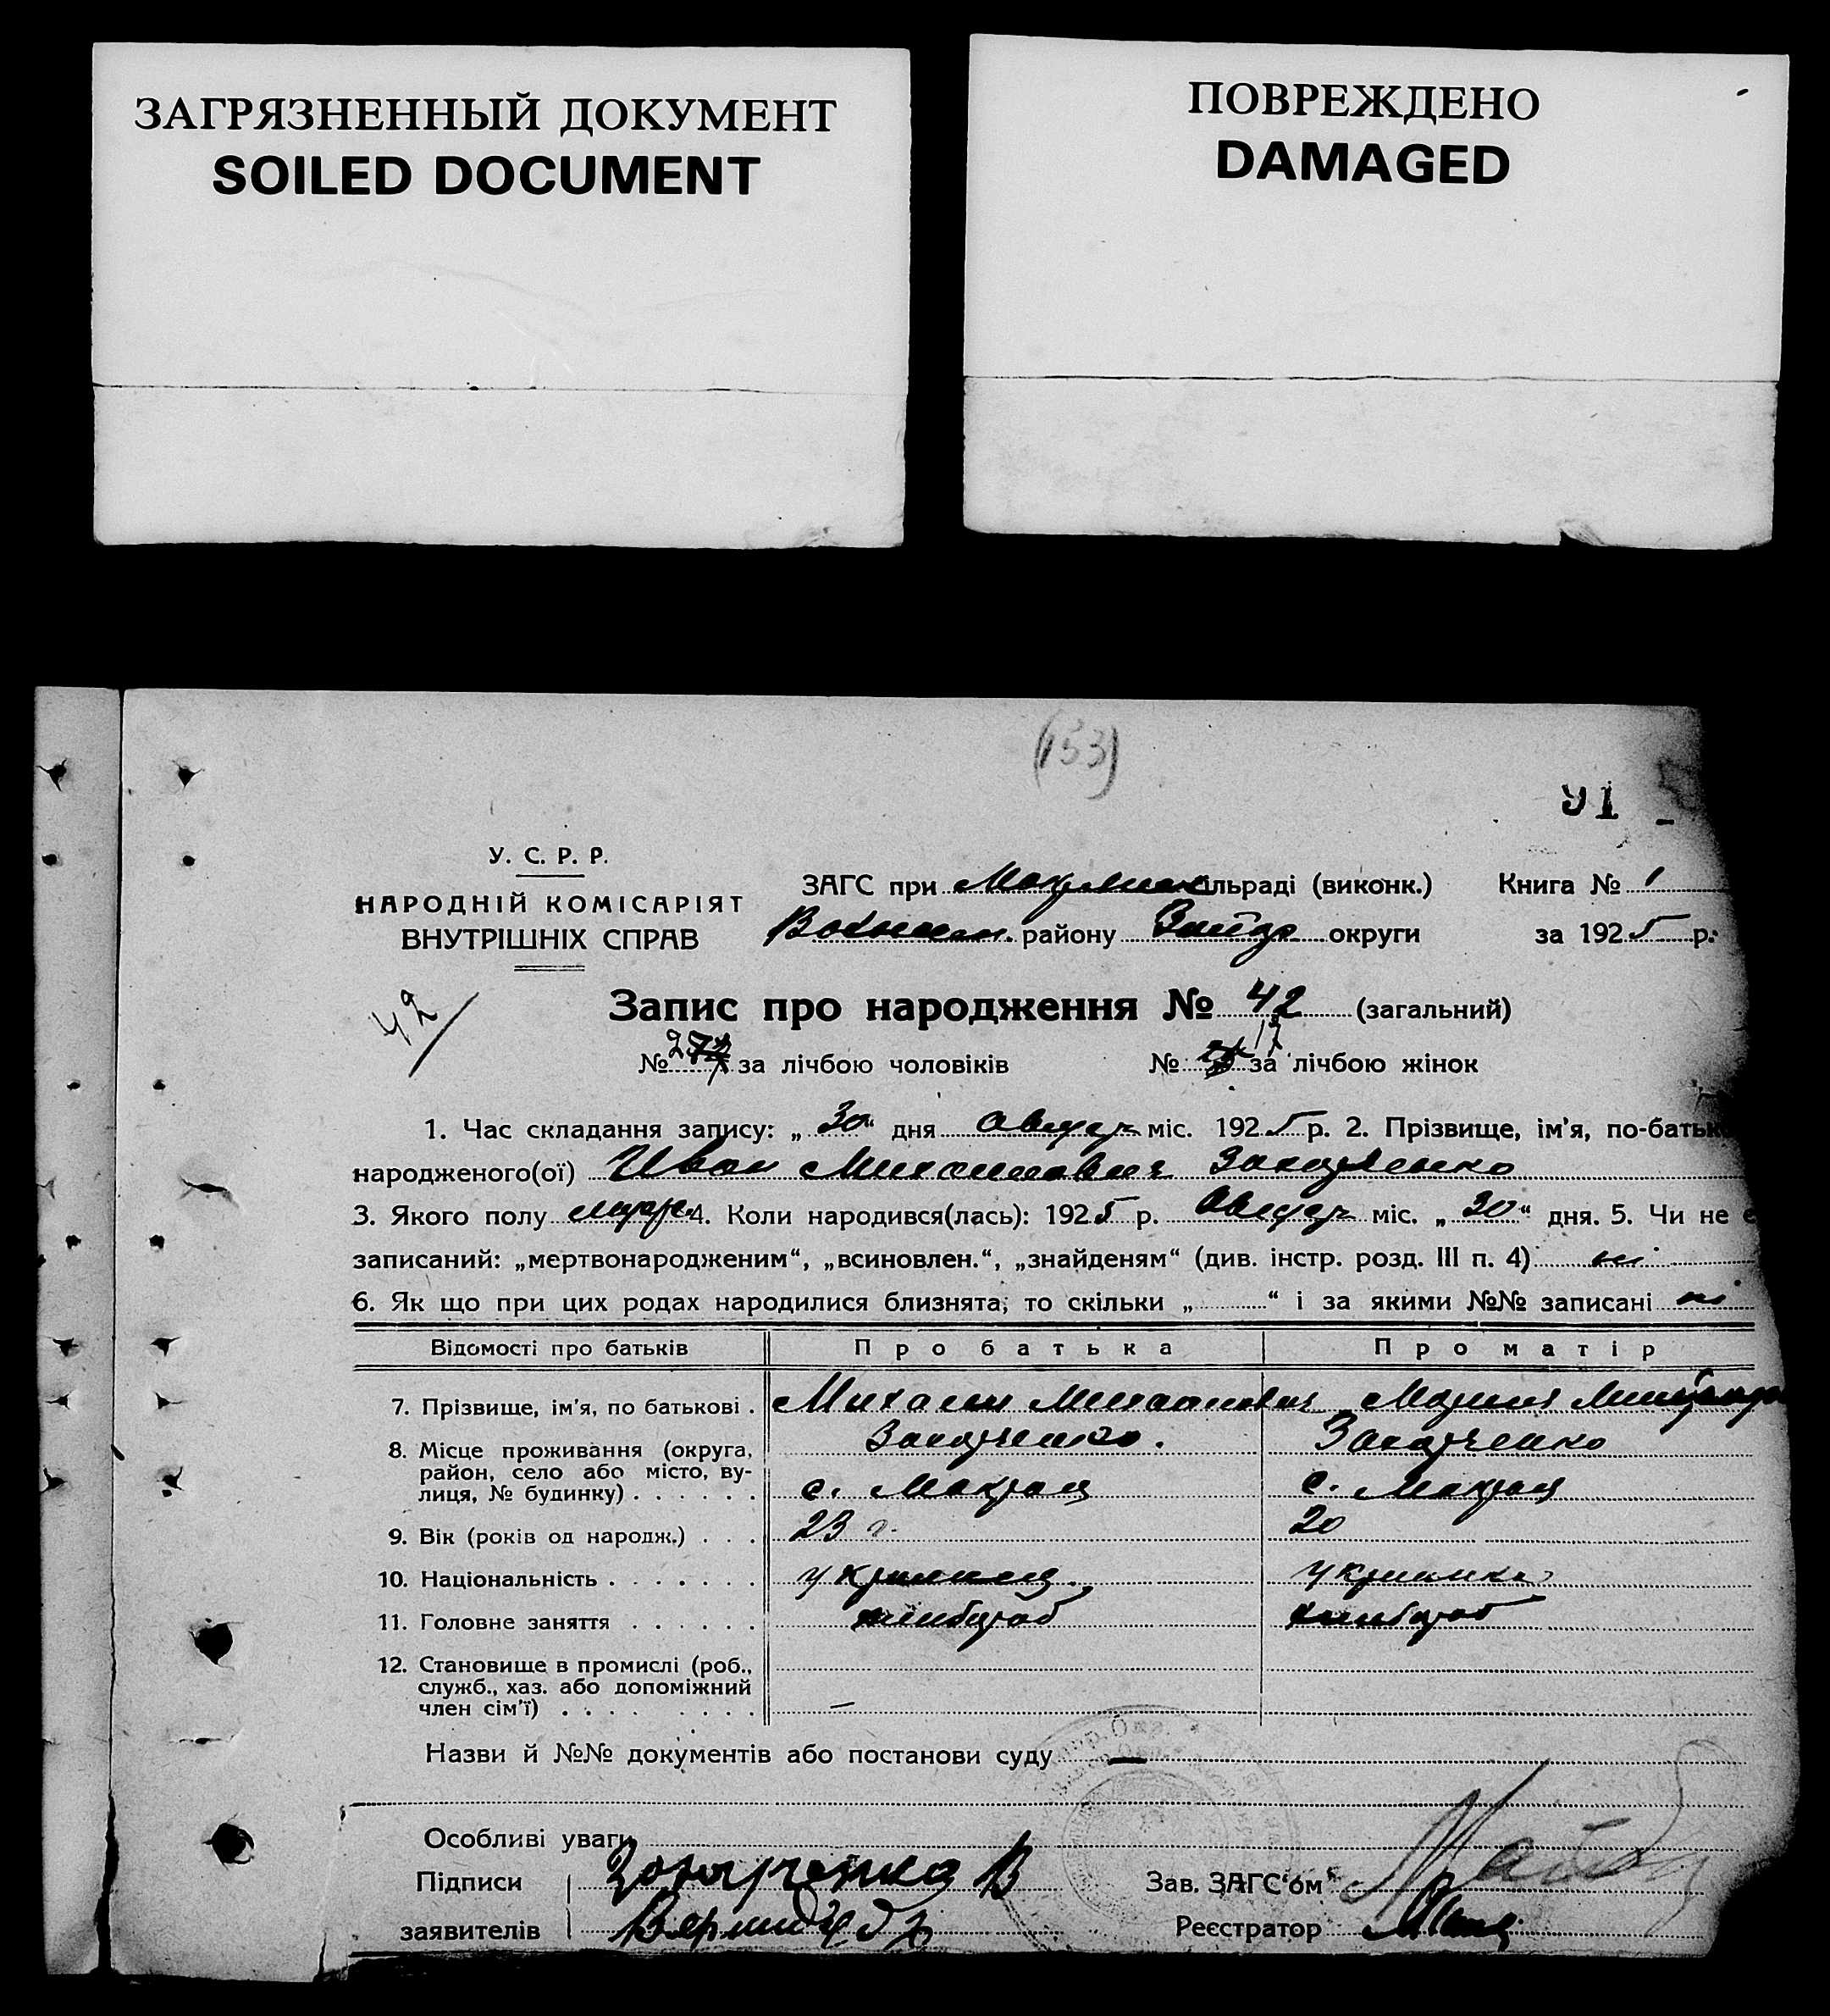 ЗАГРЯЗНЕННЫЙ ДОКУМЕНТ
SOILED DOCUMENT
ПОВРЕЖДЕНО
DAMAGED
(153)
91
У. С. Р. Р.
НАРОДНІЙ КОМІСАРІЯТ
ВНУТРІШНІХ СПРАВ
ЗАГС при сільраді (виконк.) Книга № 1
району округи за 1925 р.
42
Запис про народження № 42 (загальний)
№ за лічбою чоловіків № за лічбою жінок
1. Час складання запису: „30“ дня міс. 1925 р. 2. Прізвище, ім'я, по-батьк
народженого(ої) Иван Михайлович Захарченко
3. Якого полу 4. Коли народився(лась): 1925 р. міс. „30“ дня. 5. Чи не є
записаний: „мертвонародженим“, „всиновлен.“, „знайденям“ (див. інстр. розд. III п. 4) ні
6. Як що при цих родах народилися близнята, то скільки „ “ і за якими №№ записані ні
Відомості про батьків Про батька Про матір
7. Прізвище, ім'я, по батькові . Михаил Михайлович Мария
Захарченко . Захарченко
8. Місце проживання (округа,
район, село або місто, ву-
лиця, № будинку) . . . . . . с. с.
9. Вік (років од народж.) . . . 23 г. 20
10. Національність . . . . . . . украинец украинка
11. Головне заняття . . . . . . хлибороб хлибороб
12. Становище в промислі (роб.,
служб., хаз. або допоміжний
член сім'ї) . . . . . . . . —
Назви й №№ документів або постанови суду —
Особливі уваги
Підписи Захарченко В
заявителів
Зав. ЗАГС'ом
Реєстратор